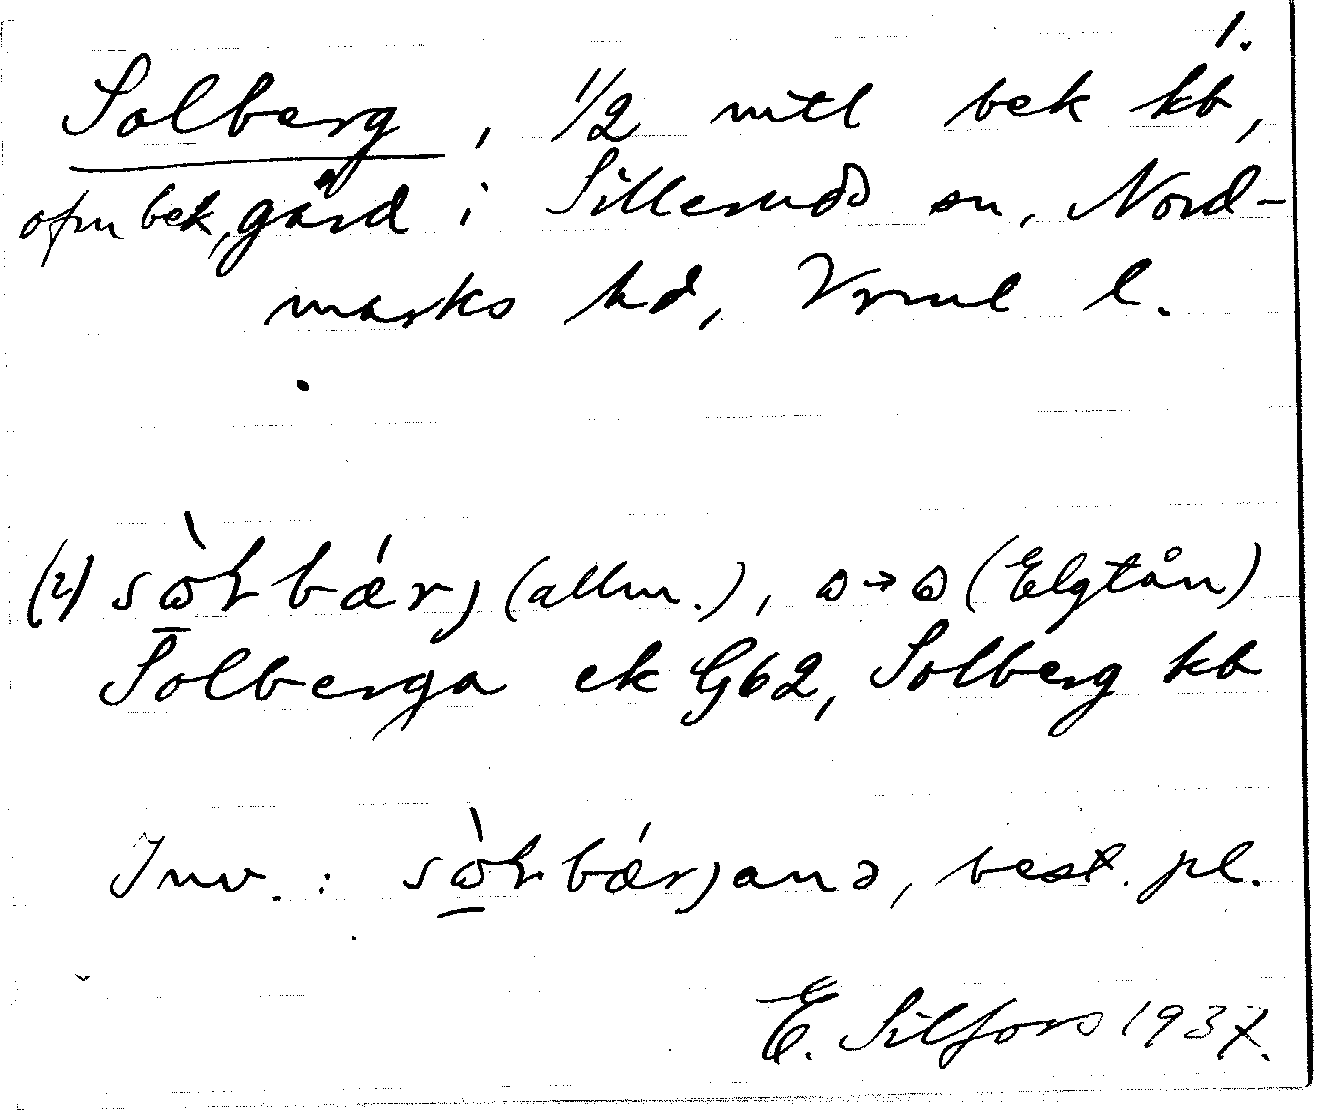 1.
Solberg, 1/2 mtl bek kb,
ofm bek, gård i Silleruds sn, Nord-
marks hd, Vrml l.
(allm.), (Elgtån)
Solberga ek G62, Solberg kb
Inv.: best. pl.
E. Silfors 1937.